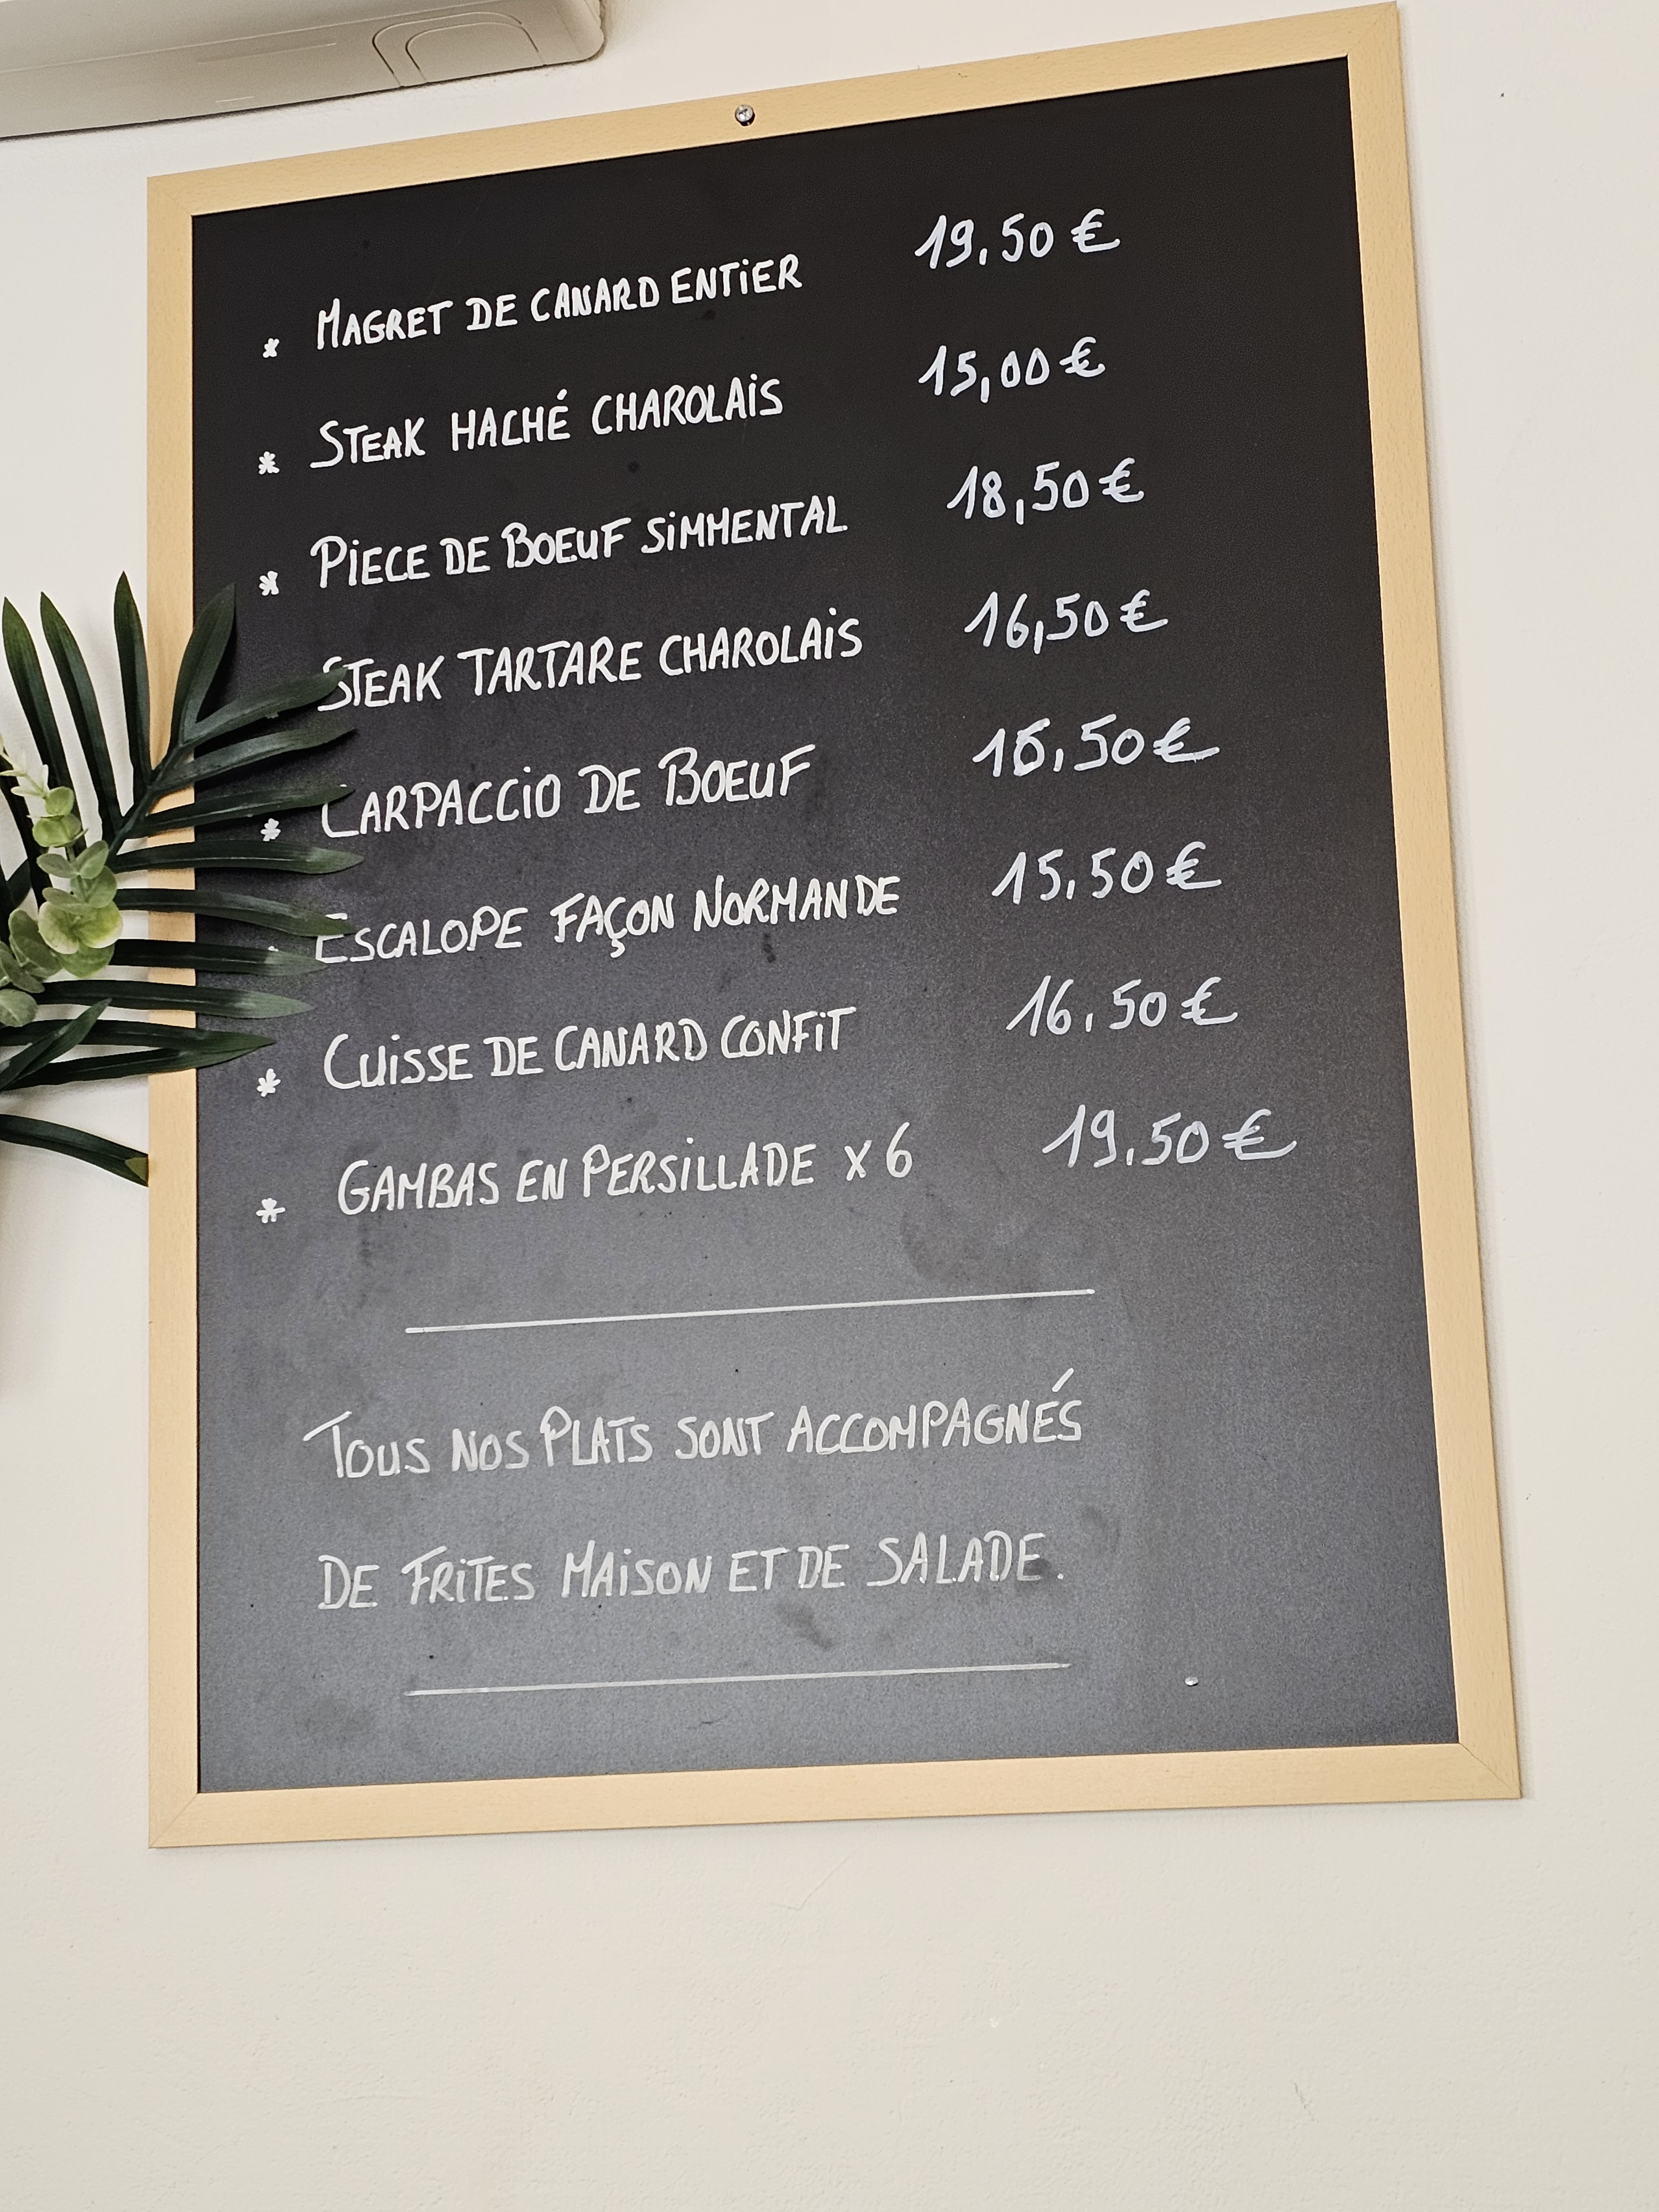 * MAGRET DE CANARD ENTIER 19,50 €
* STEAK HACHÉ CHAROLAIS 15,00 €
* PIECE DE BOEUF SIMMENTAL 18,50 €
STEAK TARTARE CHAROLAIS 16,50 €
* CARPACCIO DE BOEUF 16,50 €
ESCALOPE FAÇON NORMANDE 15,50 €
* CUISSE DE CANARD CONFIT 16,50 €
* GAMBAS EN PERSILLADE x 6 19,50 €
TOUS NOS PLATS SONT ACCOMPAGNÉS
DE FRITES MAISON ET DE SALADE.